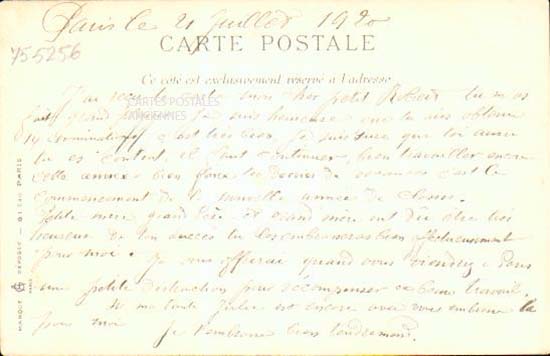 Paris le 21 Juillet 1920
755256
CARTE POSTALE
Ce côté est exclusivement réservé à l'adresse
J'ai reçu ta carte mon cher petit Robert tu m'as
fait grand plaisir Je suis heureuse que tu aies obtenu
14 nominations c'est très bien. Je suis sure que toi aussi
tu es content, il faut continuer, bien travailler encore
cette année, bien faire tes devoirs de vacances c'est le
commencement de la nouvelle année de classe.
Petite mère grand père et grand mère ont du être très
heureux de ton succès tu les embrasseras bien affectueusement
pour moi. Je vous offrirai quand vous viendrez à Paris
une petite distraction pour récompenser ce bon travail.
Si ma tante Julie est encore avec vous embrasse la
pour moi Je t'embrasse bien tendrement.
CARTES POSTALES
ANCIENNES
MARQUE DÉPOSÉE PARIS